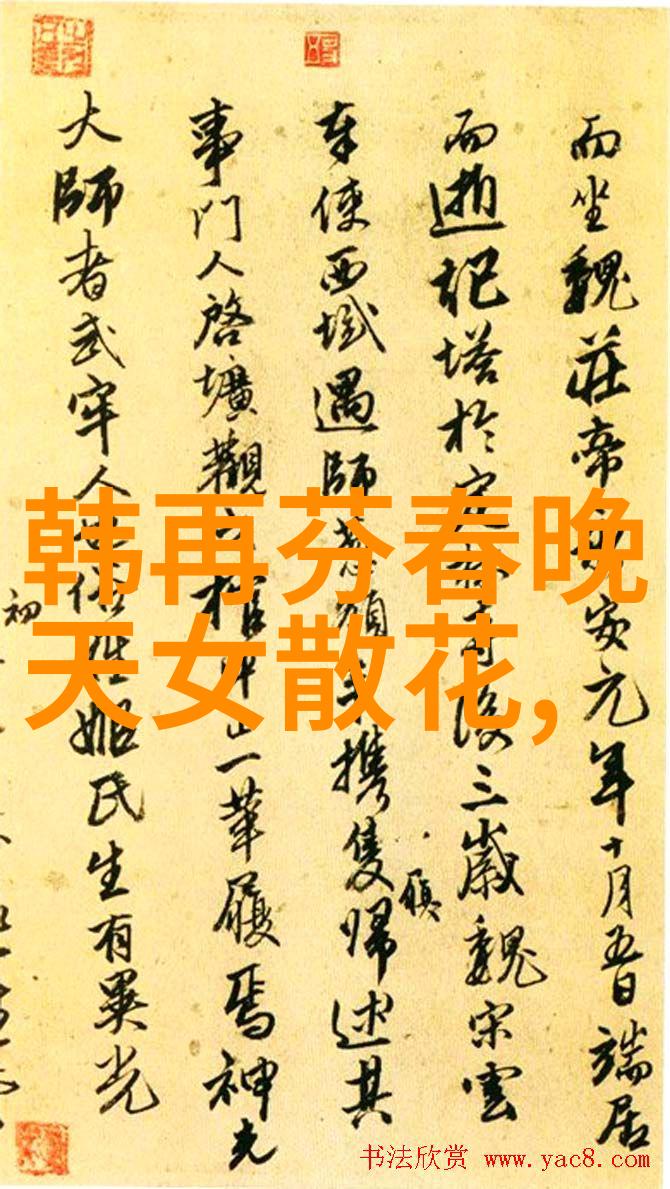 而坐魏莊帝安元年十月五日端居
而逝塔於定林寺後三歲魏宋雲
奉使西域遇師葱嶺手攜隻歸述其
履
事門人啓壙觀之棺中止一革履焉神光
大師者武牢人也俗姓姬氏生有異光
初
韩再芬春晚
天女散花,
书法欣赏 www.yac8.com